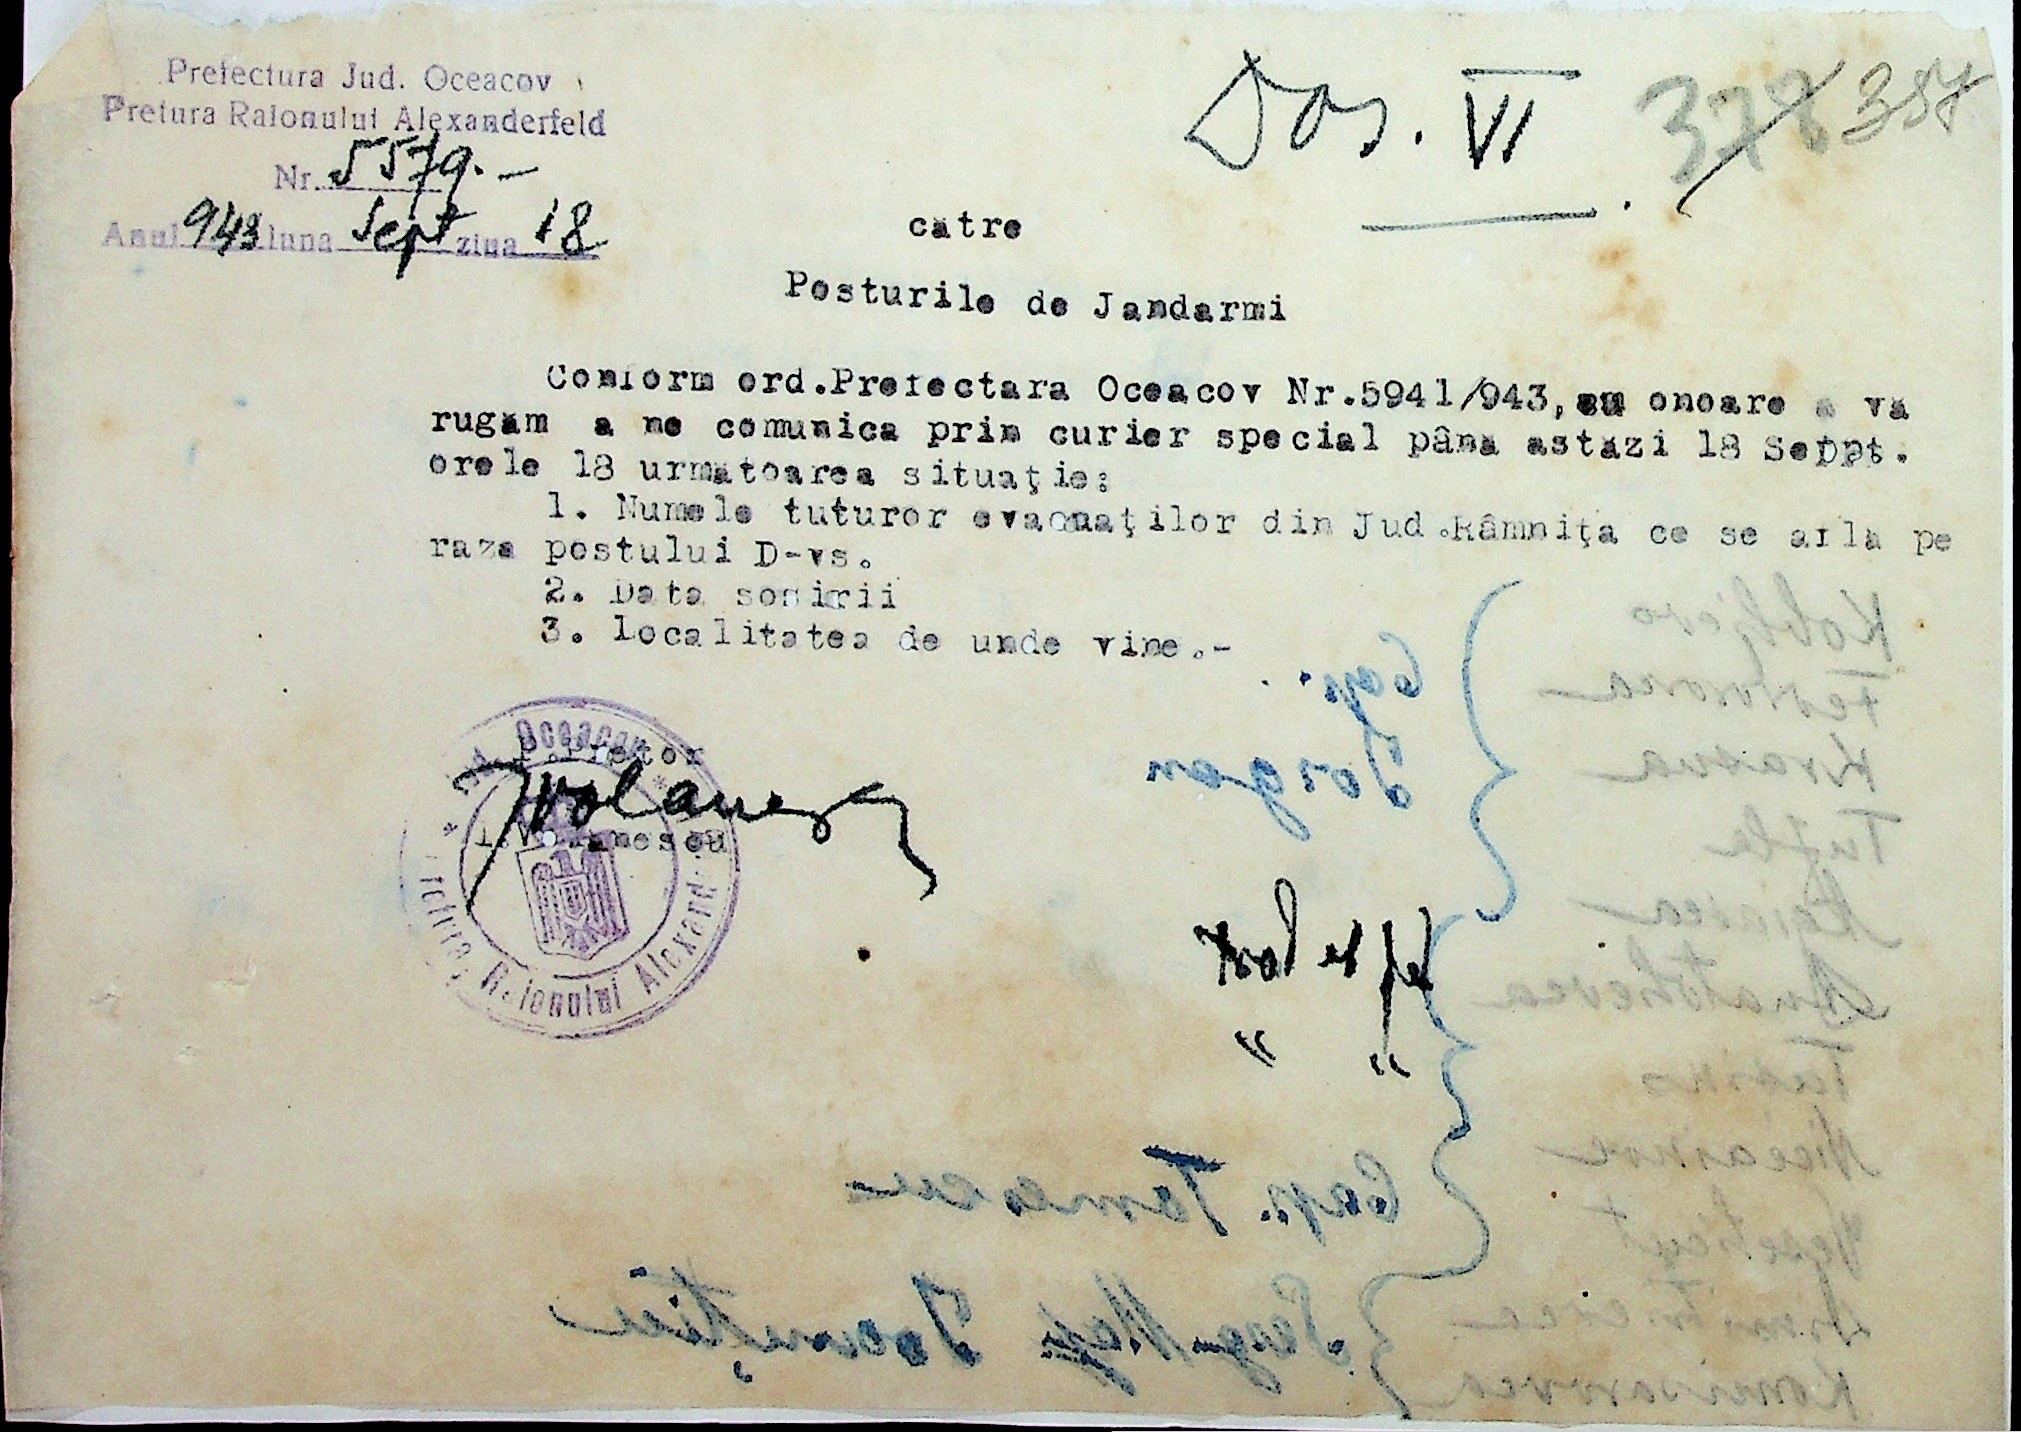 Prefectura Jud. Oceacov
Pretura Raionului Alexanderfeld
Nr. 5579.-
Anul 943 luna Sept ziua 18
Dos. VI
378 357
catre
Posturile de Jandarmi
Conform ord.Prefectara Oceacov Nr.5941/943, am onoare a va
rugam a ne comunica prin curier special pâna astazi 18 Seppt.
orele 18 urmatoarea situaţie:
1. Numele tuturor evacuaţilor din Jud.Râmniţa ce se afla pe
raza postului D-vs.
2. Data sosirii
3. localitatea de unde vine.-
P.Pretor
I.Volanescu
Jud. Oceacov
Pretura Raionului Alexand
Cap.
Iorgan
Şef de Post
" "
Cap. Tomescu
Serg. Maj. Ioaniţiu
Krasna
Tuzla
Komisarovca